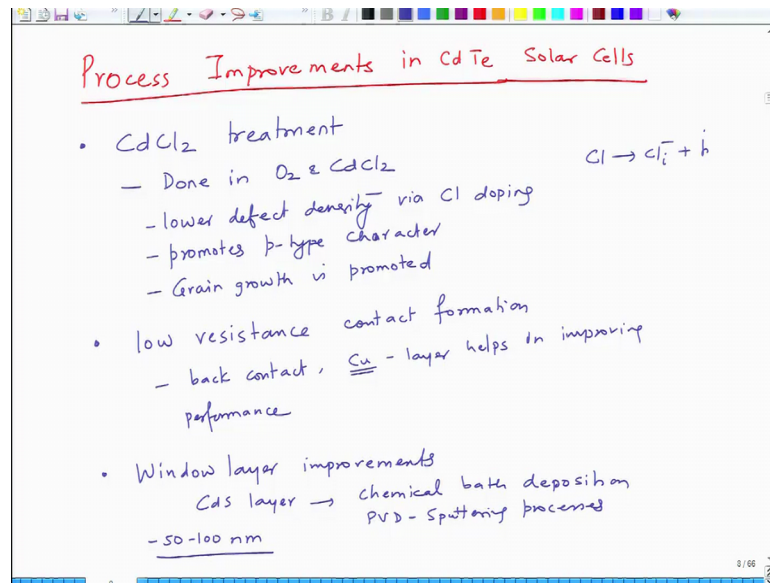 Process Improvements in CdTe Solar Cells
• CdCl2 treatment
Cl → Cl i⁻ + h˙
— Done in O2 & CdCl2
- lower defect density via Cl doping
- promotes p-type character
- Grain growth is promoted
• low resistance contact formation
- back contact, Cu - layer helps in improving
performance
• Window layer improvements
CdS layer → chemical bath deposition
PVD - Sputtering processes
- 50-100 nm
8 / 66